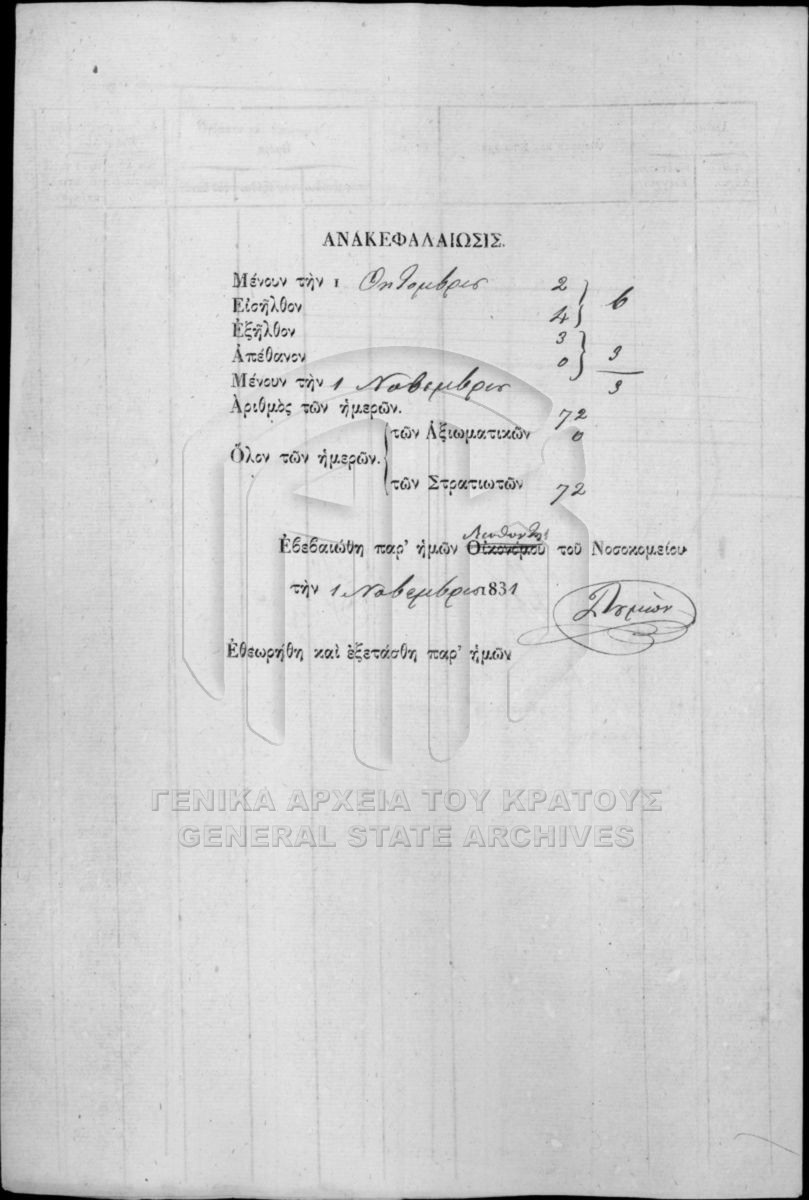 ΑΝΑΚΕΦΑΛΑΙΩΣΙΣ.
Μένουν τὴν 1 Οκτομβριου 2
Εἰσῆλθον 4 6
Ἐξῆλθον 3
Ἀπέθανον 0 3
Μένουν τὴν 1 Νοεμβριου 3
Ἀριθμὸς τῶν ἡμερῶν. 72
τῶν Ἀξιωματικῶν 0
Ὅλον τῶν ἡμερῶν.
τῶν Στρατιωτῶν 72
Διευθυντου
Ἐβεβαιώθη παρ' ἡμῶν Οἰκονόμου τοῦ Νοσοκομείου
τὴν 1 Νοεμβριου 1831
Ἐθεωρήθη καὶ ἐξετάσθη παρ' ἡμῶν
ΓΕΝΙΚΑ ΑΡΧΕΙΑ ΤΟΥ ΚΡΑΤΟΥΣ
GENERAL STATE ARCHIVES